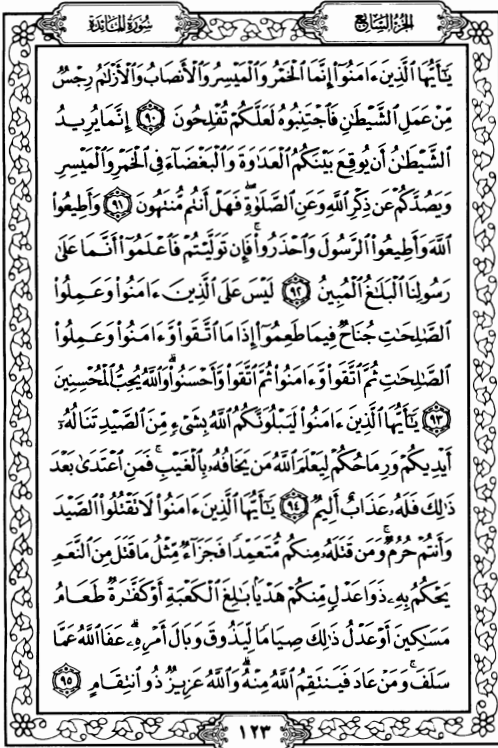 الجزء السابع
سورة المائدة
يَٰٓأَيُّهَا ٱلَّذِينَ ءَامَنُوٓا۟ إِنَّمَا ٱلْخَمْرُ وَٱلْمَيْسِرُ وَٱلْأَنصَابُ وَٱلْأَزْلَٰمُ رِجْسٌ
مِّنْ عَمَلِ ٱلشَّيْطَٰنِ فَٱجْتَنِبُوهُ لَعَلَّكُمْ تُفْلِحُونَ ٩٠ إِنَّمَا يُرِيدُ
ٱلشَّيْطَٰنُ أَن يُوقِعَ بَيْنَكُمُ ٱلْعَدَٰوَةَ وَٱلْبَغْضَآءَ فِى ٱلْخَمْرِ وَٱلْمَيْسِرِ
وَيَصُدَّكُمْ عَن ذِكْرِ ٱللَّهِ وَعَنِ ٱلصَّلَوٰةِ ۖ فَهَلْ أَنتُم مُّنتَهُونَ ٩١ وَأَطِيعُوا۟
ٱللَّهَ وَأَطِيعُوا۟ ٱلرَّسُولَ وَٱحْذَرُوا۟ ۚ فَإِن تَوَلَّيْتُمْ فَٱعْلَمُوٓا۟ أَنَّمَا عَلَىٰ
رَسُولِنَا ٱلْبَلَٰغُ ٱلْمُبِينُ ٩٢ لَيْسَ عَلَى ٱلَّذِينَ ءَامَنُوا۟ وَعَمِلُوا۟
ٱلصَّٰلِحَٰتِ جُنَاحٌ فِيمَا طَعِمُوٓا۟ إِذَا مَا ٱتَّقَوا۟ وَّءَامَنُوا۟ وَعَمِلُوا۟
ٱلصَّٰلِحَٰتِ ثُمَّ ٱتَّقَوا۟ وَّءَامَنُوا۟ ثُمَّ ٱتَّقَوا۟ وَّأَحْسَنُوا۟ ۗ وَٱللَّهُ يُحِبُّ ٱلْمُحْسِنِينَ
٩٣ يَٰٓأَيُّهَا ٱلَّذِينَ ءَامَنُوا۟ لَيَبْلُوَنَّكُمُ ٱللَّهُ بِشَىْءٍ مِّنَ ٱلصَّيْدِ تَنَالُهُۥٓ
أَيْدِيكُمْ وَرِمَاحُكُمْ لِيَعْلَمَ ٱللَّهُ مَن يَخَافُهُۥ بِٱلْغَيْبِ ۚ فَمَنِ ٱعْتَدَىٰ بَعْدَ
ذَٰلِكَ فَلَهُۥ عَذَابٌ أَلِيمٌ ٩٤ يَٰٓأَيُّهَا ٱلَّذِينَ ءَامَنُوا۟ لَا تَقْتُلُوا۟ ٱلصَّيْدَ
وَأَنتُمْ حُرُمٌ ۚ وَمَن قَتَلَهُۥ مِنكُم مُّتَعَمِّدًا فَجَزَآءٌ مِّثْلُ مَا قَتَلَ مِنَ ٱلنَّعَمِ
يَحْكُمُ بِهِۦ ذَوَا عَدْلٍ مِّنكُمْ هَدْيًۢا بَٰلِغَ ٱلْكَعْبَةِ أَوْ كَفَّٰرَةٌ طَعَامُ
مَسَٰكِينَ أَوْ عَدْلُ ذَٰلِكَ صِيَامًا لِّيَذُوقَ وَبَالَ أَمْرِهِۦ ۗ عَفَا ٱللَّهُ عَمَّا
سَلَفَ ۚ وَمَنْ عَادَ فَيَنتَقِمُ ٱللَّهُ مِنْهُ ۗ وَٱللَّهُ عَزِيزٌ ذُو ٱنتِقَامٍ ٩٥
١٢٣